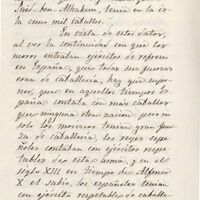 Luis ben Alhahem, tenia en la ór-
ta cinco mil caballos.
En vista de estos datos,
al ver la continuidad con que los
moros entraban ejércitos de refresco
en España, y que todas sus fuerzas
eran de caballeria, hay que supo-
ner, que en aquellos tiempos Es-
paña contaba con mas caballos
que ninguna otra nacion, pero no
solo los moriscos tenian gran fuer-
za de caballeria, los reyes espa-
ñoles contaban con ejércitos respe-
tables de esta arma, y en el
siglo XIII en tiempo de Alfonso
X el sabio, los españoles tenian
un ejército respetable de caballe-